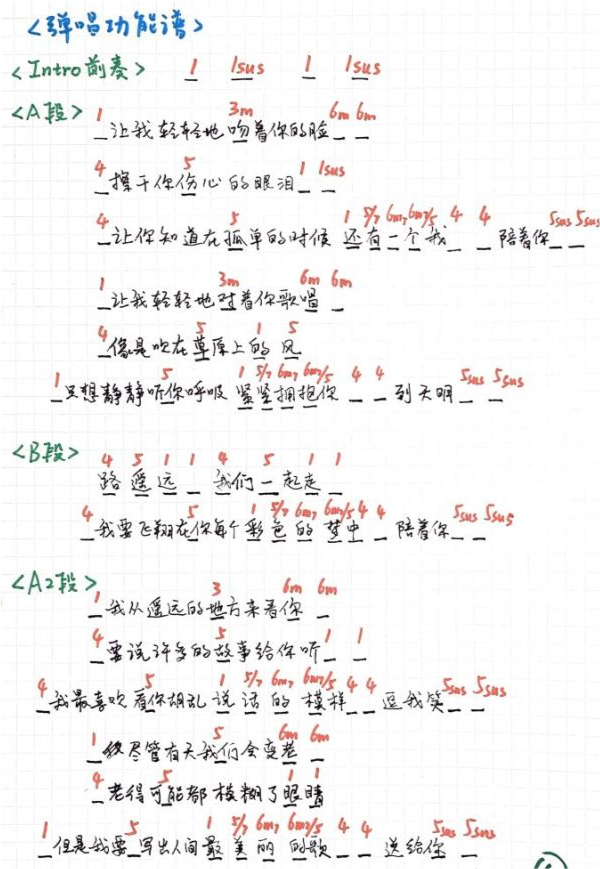 <弹唱功能谱>
<Intro前奏> 1 1sus 1 1sus
<A段> 1 3m 6m 6m
_让我轻轻地吻着你的脸_ _
4 5 1 1sus
_擦干你伤心的眼泪_ _
4 5 1 5/7 6m7 6m7/5 4 4 5sus 5sus
_让你知道在孤单的时候 还有一个我_ _陪着你_ _
1 3m 6m 6m
_让我轻轻地对着你歌唱_
4 5 1 5
_像是吹在草原上的风
1 5 1 5/7 6m7 6m7/5 4 4 5sus 5sus
_只想静静听你呼吸 紧紧拥抱你_ _到天明_ _
<B段> 4 5 1 1 4 5 1 1
路遥远_ 我们一起走_
4 5 1 5/7 6m7 6m7/5 4 4 5sus 5sus
_我要飞翔在你每个彩色的梦中_ 陪着你_ _
<A2段>
1 3 6m 6m
_我从遥远的地方来看你_
4 5 1 1
_要说许多的故事给你听_ _
4 5 1 5/7 6m7 6m7/5 4 4 5sus 5sus
_我最喜欢看你胡乱说话的模样_ _逗我笑_ _
1 5 6m 6m
_尽管有天我们会变老_
4 5 1 1
_老得可能都模糊了眼睛
1 5 1 5/7 6m7 6m7/5 4 4 5sus 5sus
_但是我要_写出人间最美丽的歌_ _送给你_